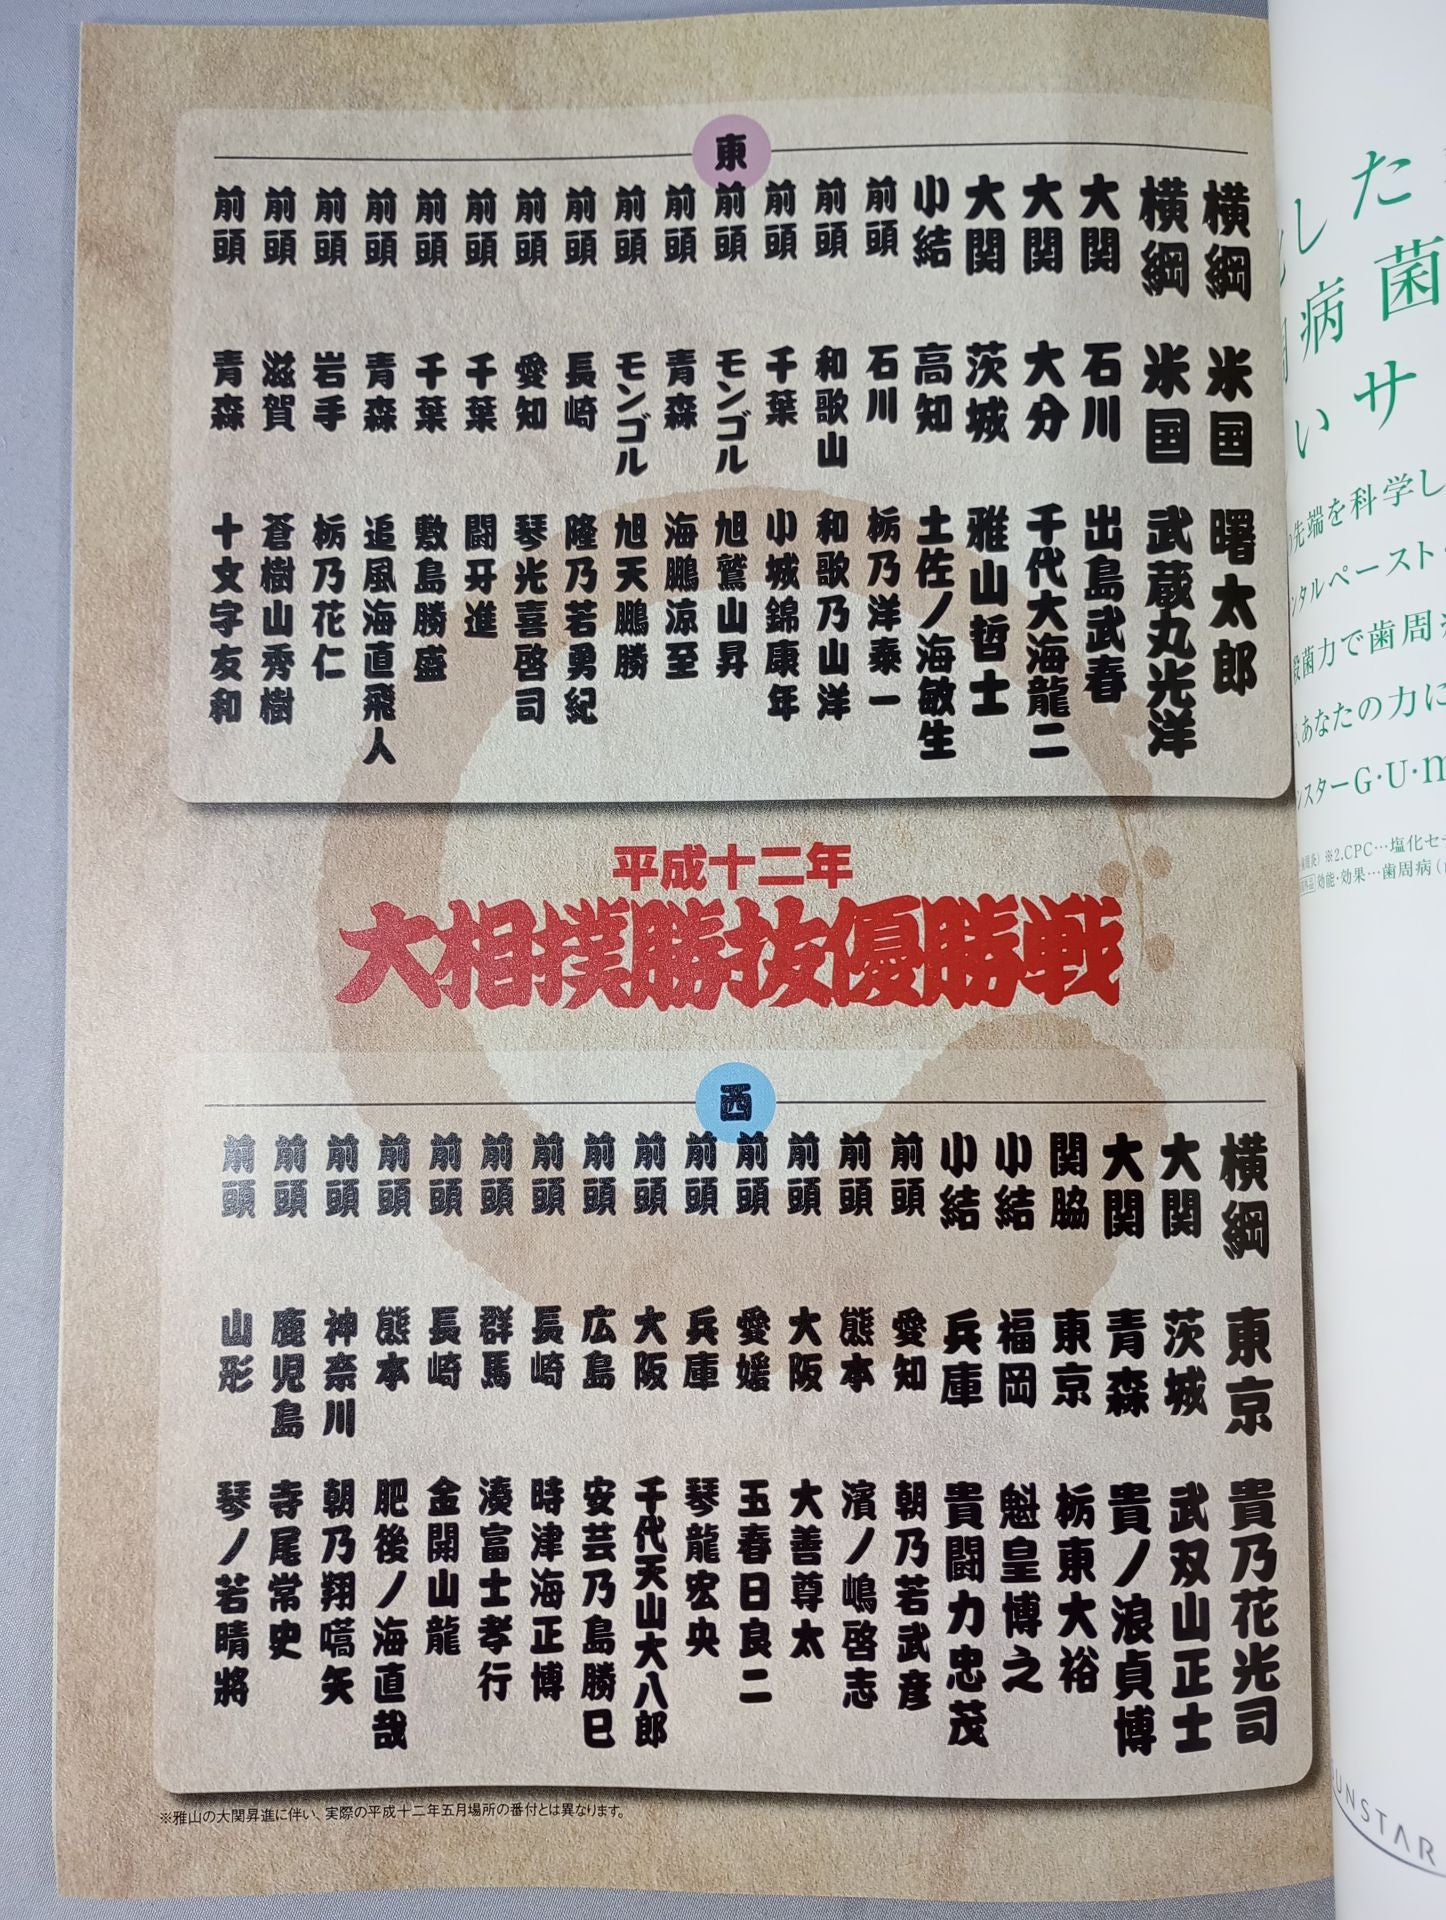 東
横綱 米国 曙太郎
横綱 米国 武蔵丸光洋
大関 石川 出島武春
大関 大分 千代大海龍二
大関 茨城 雅山哲士
小結 高知 土佐ノ海敏生
前頭 石川 栃乃洋泰一
前頭 和歌山 和歌乃山洋
前頭 千葉 小城錦康年
前頭 モンゴル 旭鷲山昇
前頭 青森 海鵬涼至
前頭 モンゴル 旭天鵬勝
前頭 長崎 隆乃若勇紀
前頭 愛知 琴光喜啓司
前頭 千葉 闘牙進
前頭 千葉 敷島勝盛
前頭 青森 追風海直飛人
前頭 岩手 栃乃花仁
前頭 滋賀 蒼樹山秀樹
前頭 青森 十文字友和
平成十二年
大相撲勝抜優勝戦
西
横綱 東京 貴乃花光司
大関 茨城 武双山正士
大関 青森 貴ノ浪貞博
関脇 東京 栃東大裕
小結 福岡 魁皇博之
小結 兵庫 貴闘力忠茂
前頭 愛知 朝乃若武彦
前頭 熊本 濱ノ嶋啓志
前頭 大阪 大善尊太
前頭 愛媛 玉春日良二
前頭 兵庫 琴龍宏央
前頭 大阪 千代天山大八郎
前頭 広島 安芸乃島勝巳
前頭 長崎 時津海正博
前頭 群馬 湊富士孝行
前頭 長崎 金開山龍
前頭 熊本 肥後ノ海直哉
前頭 神奈川 朝乃翔嚆矢
前頭 鹿児島 寺尾常史
前頭 山形 琴ノ若晴將
※雅山の大関昇進に伴い、実際の平成十二年五月場所の番付とは異なります。
した
病菌
いサ
先端を科学し
ンタルペースト
殺菌力で歯周
、あなたの力に
ンスターG・U・m
※2.CPC…塩化セ
効能・効果…歯周病（
UNSTAR